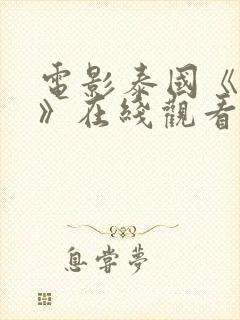 電影泰國《
》在綫觀看
息嘗夢